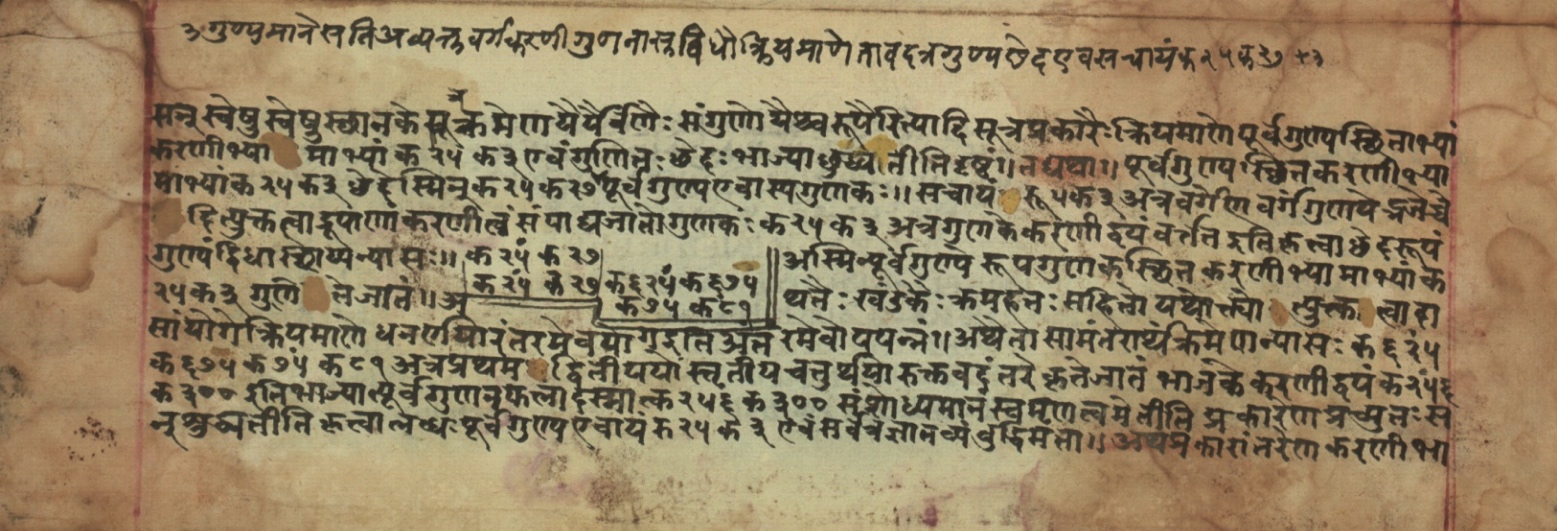 ३ गुण्यमाने सति अव्यक्तवर्गकरणीगुणनासु विधौ क्रियमाणे तावदत्र गुण्यछेद एव स चायं क २५ क २७ +३
सन् स्वेषु स्वेषु स्छानकेषु क्रमेण यैर्यैर्वर्णैः संगुणो यैश्च रूपैरित्यादि सूत्रप्रकारैः क्रियमाणे पूर्वगुण्यस्छिताभ्यां
करणीभ्या माभ्यां क २५ क ३ एवं गुणितः छेदः भाज्याछुध्यतीति दृष्टं॥ तद्यथा॥ पूर्वगुण्यस्छितकरणीभ्या
माभ्यां क २५ क ३ छेदस्मिन् क २५ क २७ पूर्वगुण्य एवास्य गुणकः॥ स चायं रू ५ क ३ अत्र वर्गेण वर्गं गुणये
दित्युक्तत्वाद्रूपाणां करणीत्वं संपाद्य जातो गुणकः क २५ क ३ अत्र गुणके करणीद्वयं वर्तत इति कृत्वा छेदरूपं
गुण्यं द्विधा स्छाप्य न्यासः॥ क २५ं क २७
क २५ं क २७ क ६२५ं क ६७५ अस्मिन्पूर्वगुण्ये रूपगुणकस्छितकरणीभ्यामाभ्यां क
२५ क ३ गुणि ते जातं॥ अ क ७५ं क ८१ थतैः खंडकैः क्रमहतः सहितो यथोक्त्यो त्युक्त त्वादा
सां योगे क्रियमाणे धनर्णयोरंतरमेव योग इति अंतरमेवोपपन्नं॥ अथैतासामंतरार्थं क्रमेण न्यासः क ६२५ं
क ६७५ क ७५ं क ८१ अत्र प्रथम द्वितीययोस्तृतीयचतुर्थयोरुक्तवदंतरे कृते जातं भाजके करणीद्वयं
क ३०० इति भाज्यात्पूर्वगुणनफलादस्मात्क २५ क ३०० संशोध्यमानं स्वमृणत्वमेतीति प्रकारेण प्रच्युतः स
न् शुध्यतीति कृत्वा लब्धः पूर्वगुण्य एवायं क २५ क ३ एवं सर्वत्र ज्ञातव्यं बुद्धिमता॥ अथ प्रकारांतरेण करणीभा